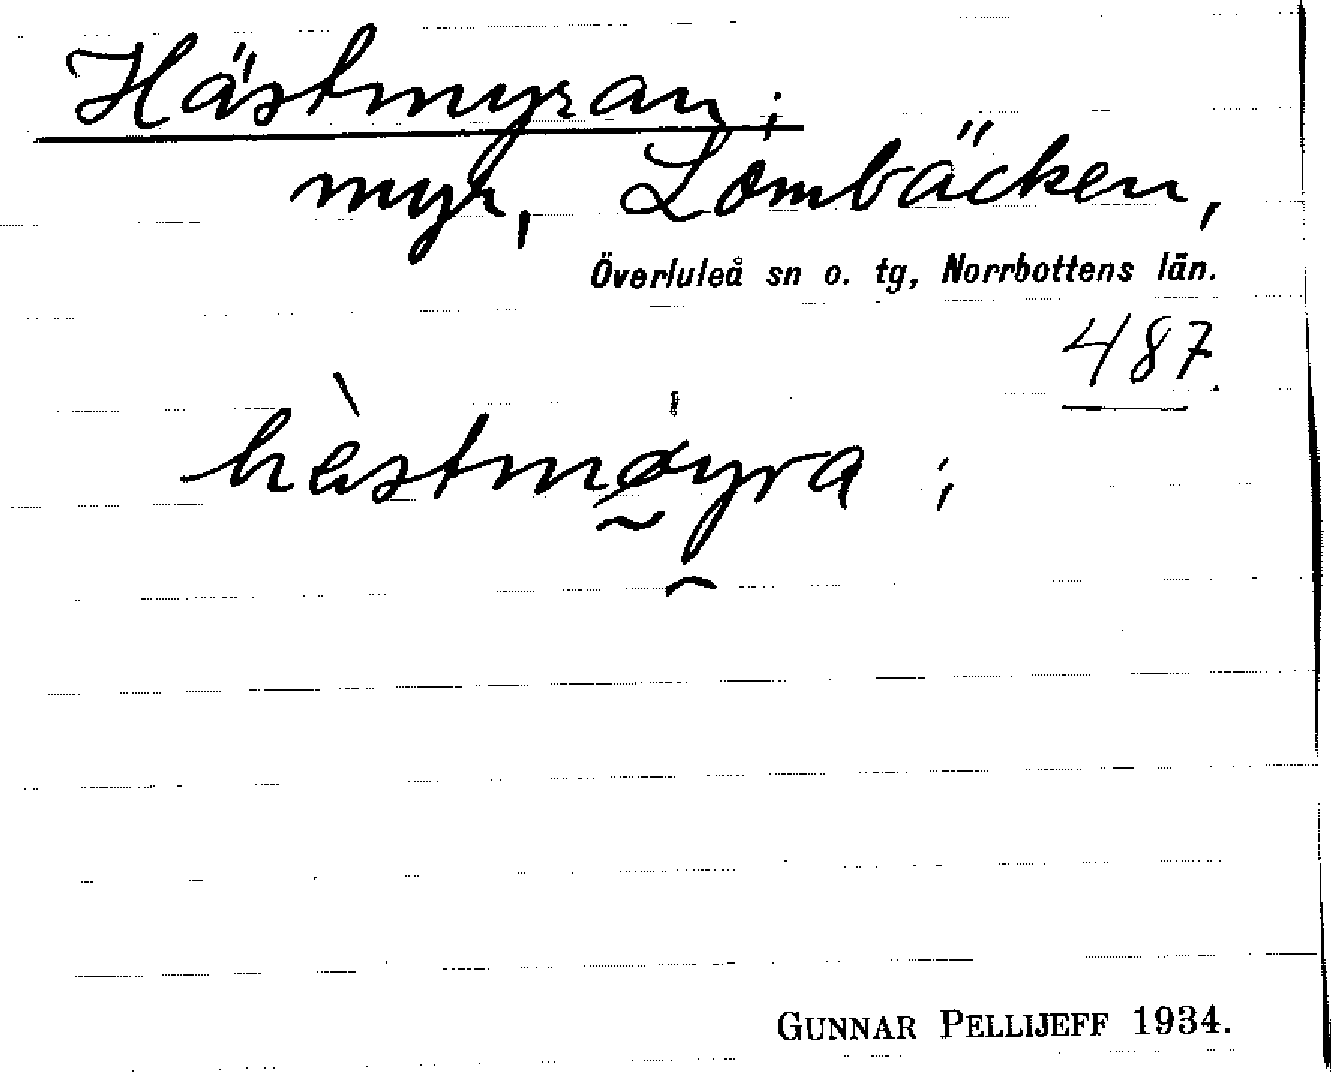 Hästmyran;
myr, Lombäcken,
Överluleå sn o. tg, Norrbottens län.
487.
hὲstmøyra;
GUNNAR PELLIJEFF 1934.